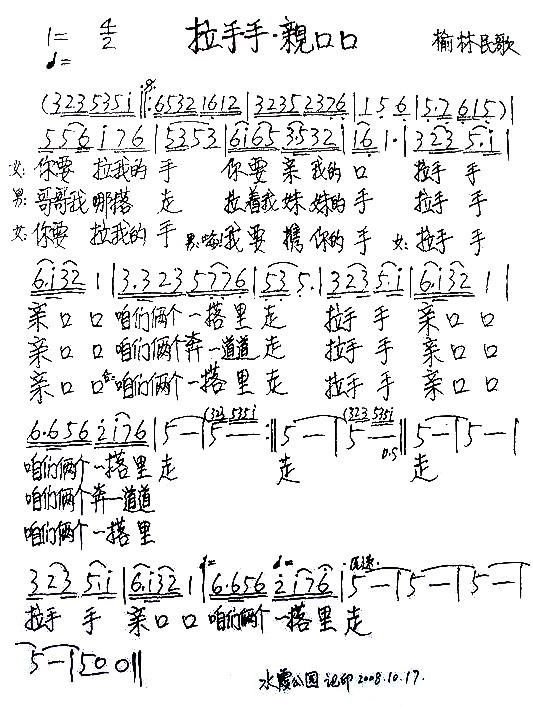 1= 4/2 拉手手·親口口 榆林民歌
(3235351‖:65321612|32352376|156|5.7615)|
556176|5353|61653532|161.|32351|
女:你要 拉我的 手 你要 亲 我的 口 拉手 手
男:哥哥我 哪搭 走 拉着我 妹妹的 手 拉手 手
女:你要 拉我的 手 男: 我要 携你的 手 女:拉手 手
6.1321|3.3235776|535.|32351|6.1321|
亲口口 咱们俩个 一搭里 走 拉手 手 亲口口
亲口口 咱们俩个奔一道道 走 拉手 手 亲口口
亲口口 合:咱们俩个 一搭里 走 拉手 手 亲口口
6.6562176|5—|(3235351 5—:‖5—|(3235351 5—‖5—|5—|
咱们俩个 一搭里 走 走 走
咱们俩个奔一道道
咱们俩个 一搭里
32351|6.1321|6.6562176|5—|5—|5—|
拉手 手 亲口口 咱们俩个 一搭里 走
5—|500‖
水霞公园 记印2008.10.17.